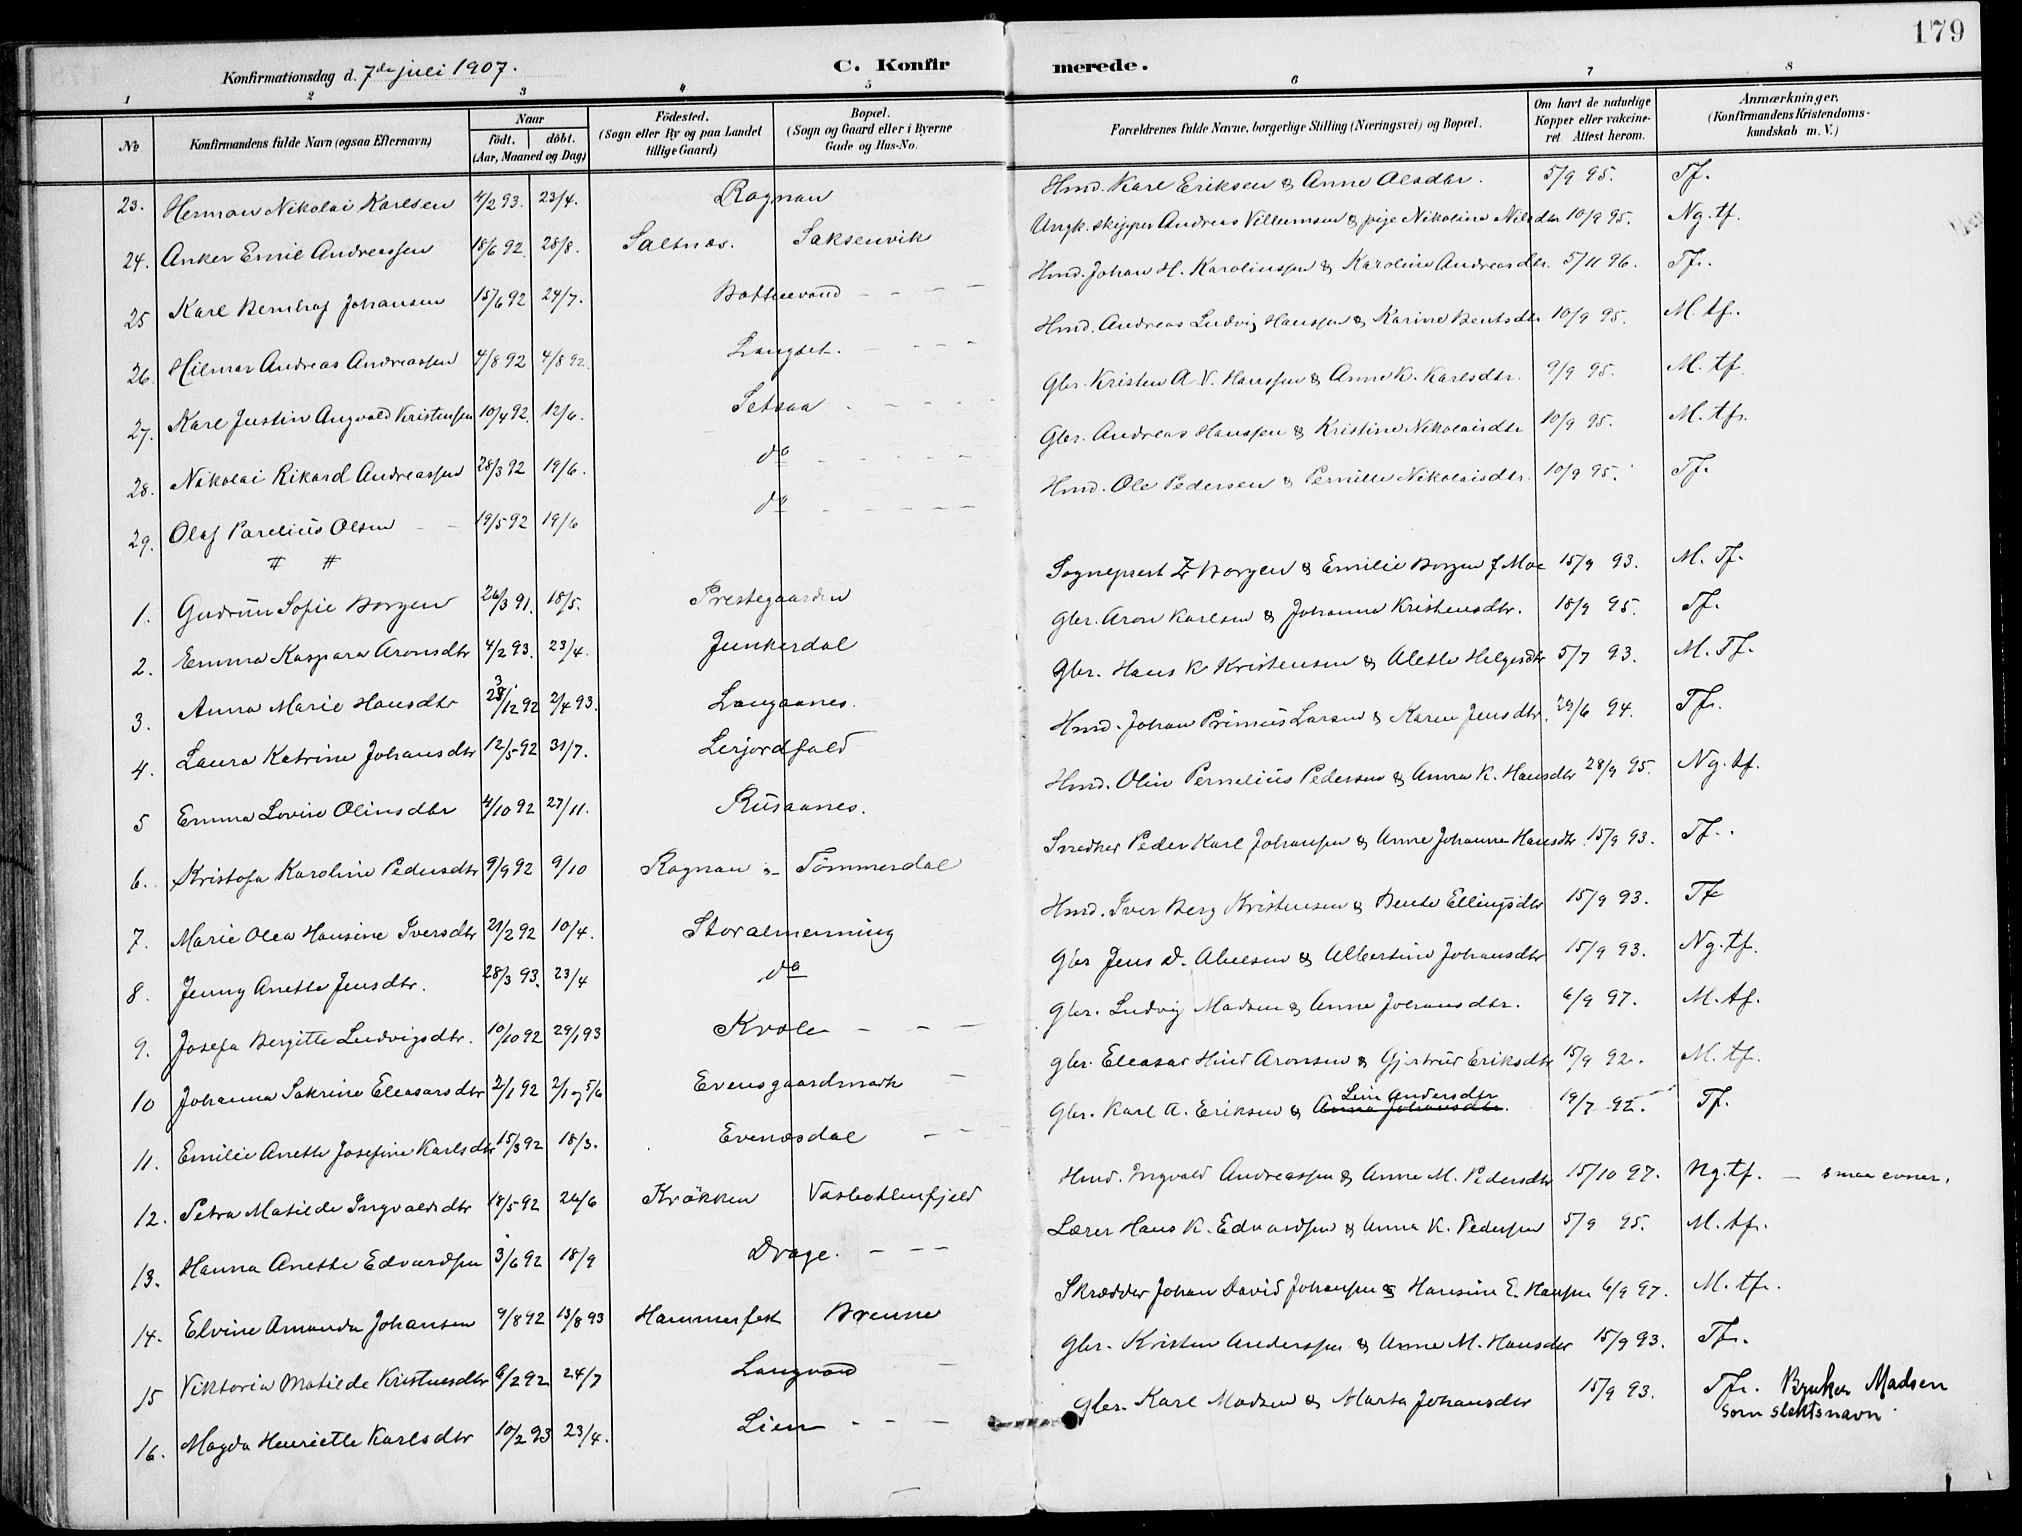 179
Konfirmationsdag d. 7de juli 1907.
C. Konfirmerede.
1 2 3 4 5 6 7 8
No
Konfirmandens fulde Navn (ogsaa Efternavn)
Naar
født. døbt.
(Aar, Maaned og Dag)
Födested.
(Sogn eller By og paa Landet
tillige Gaard)
Bopæl.
(Sogn og Gaard eller i Byerne
Gade og Hus-No.
Forældrenes fulde Navne, borgerlige Stilling (Næringsvei) og Bopæl.
Om havt de naturlige
Kopper eller vakcine-
ret. Attest herom.
Anmærkninger,
(Konfirmandens Kristendoms-
kundskab m. V.)
23. Herman Nikolai Karlsen 4/2 93. 23/4. Rognan Hmd. Karl Eriksen & Anne Olsdtr. 5/9 95. Tf.
24. Anker Emil Andreassen 18/6 92. 28/8. Saltnes. Saksenvik Ungk. skipper Andreas Villumsen & pige Nikoline Nilsdtr 10/9 95. Ng. tf.
25 Karl Bernhof Johansen 15/6 92 24/7. Botnevand Hmd. Johan H. Karolinssen & Karoline Andreasdtr. 5/11 96. Tf.
26. Hilmar Andreas Andreassen 4/8 92 4/8 92. Langset. Hmd. Andreas Ludvig Hanssen & Karine Bentsdtr 10/9 95. M. tf.
27. Karl Justin Angvald Kristensen 10/4 92. 12/6. Setsaa Gbr. Kristen A. V. Hanssen & Anne K. Karlsdtr. 9/9 95. M. tf.
28. Nikolai Rikard Andreassen 28/3 92 19/6. do Gbr. Andreas Hanssen & Kristine Nikolaisdtr 10/9 95. M. tf.
29. Olaf Parelius Olsen 19/5 92 19/6 do Hmd. Ole Pedersen & Pernille Nikolaisdtr. 10/9 95. Tf.
# #
1. Gudrun Sofie Borgen 26/3 91. 18/5. Prestegaarden Sogneprest Borgen & Emilie Borgen f. Moe 15/9 93. M. Tf.
2. Emma Kaspara Aronsdtr 4/2 93. 23/4. Junkerdal Gbr. Aron Karlsen & Johanna Kristensdtr. 18/9 95. Tf.
3. Anna Marie Hansdtr 23/12 92 2/4 93. Langaanes. Gbr. Hans K Kristensen & Alette Helgesdtr 5/7 93. M. Tf.
4. Laura Katrine Johansdtr 12/5 92 31/7. Lerjordfald Hmd. Johan Primus Larsen & Karen Jensdtr. 29/6 94. Tf.
5 Emma Lovise Olinsdtr 4/10 92 27/11. Rusaanes. Hmd. Olin Pernelius Pedersen & Anna K. Hansdtr 28/9 95. Ng. tf.
6. Kristofa Karoline Pedersdtr 9/9 92 9/10 Rognan Tömmerdal Snedker Peder Karl Johanssen & Anne Johanna Hansdtr. 15/9 93. Tf.
7. Marie Olea Hansine Iversdtr 21/2 92 10/4. Storalmenning Hmd. Iver Berg Kristensen & Bente Ellingsdtr 15/9 93. Tf
8. Jenny Anette Jensdtr. 28/3 93. 23/4 do Gbr Jens D. Abelsen & Albertine Johansdtr 15/9 93. Ng. tf.
9. Josefa Bergitte Ludvigsdtr. 10/10 92 29/1 93 Kvale Gbr. Ludvig Madsen & Anne Johansdtr. 6/9 97. M. tf.
10 Johanna Sakrine Eleasarsdtr 2/1 92 2/1 og 5/6 Evensgaardmark Gbr. Eleasar Hind Aronsen & Gjertrud Eriksdtr 15/9 92. M. tf.
11. Emilie Anette Josefine Karlsdtr 15/3 92 18/3. Evenesdal Gbr. Karl A. Eriksen & Anna Johansdtr. Lina Andersdtr 19/7 92. Tf.
12. Petra Matilde Ingvaldsdtr 18/5 92 26/6 Krökken Vasbotlenfjeld Hmd. Ingvald Andreassen & Anne M. Pedersdtr 15/10 97. Ng. tf. – smaa evner.
13. Hanna Anette Edvardsen 3/6 92 18/9 Drage. Lærer Hans K. Edvardsen & Anna K. Pedersen 5/9 95. M. tf.
14. Elvine Amanda Johansen 9/8 92 13/8 93 Hammerfest Brenne Skrædder Johan David Johansen & Hansine E. Hansen 6/9 97. M. tf.
15 Viktoria Matilde Kristensdtr 6/2 92 24/7 Langvand Gbr. Kristen Anderssen & Anne M. Hansdtr 15/9 93. Tf.
16. Magda Henriette Karlsdtr 10/2 93 23/4. Lien Gbr. Karl Madsen & Marta Johansdtr 15/9 93. Tf. Bruker Madsen
som slektsnavn